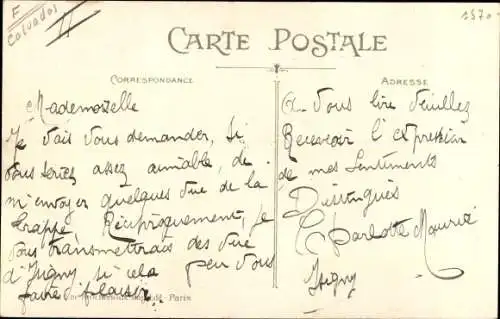 F
Calvados
1570
CARTE POSTALE
CORRESPONDANCE
ADRESSE
Mademoiselle
Je vais vous demander, si
vous seriez assez aimable, de
m'envoyer quelques vue de la
Trappe. Réciproquement, je
vous transmettrais des vue
d'Isigny si cela peu vous
faire plaisir.
A vous lire Veuillez
Recevoir l'expression
de mes Sentiments
Distingués
Charlotte Maurice
Isigny
Paris